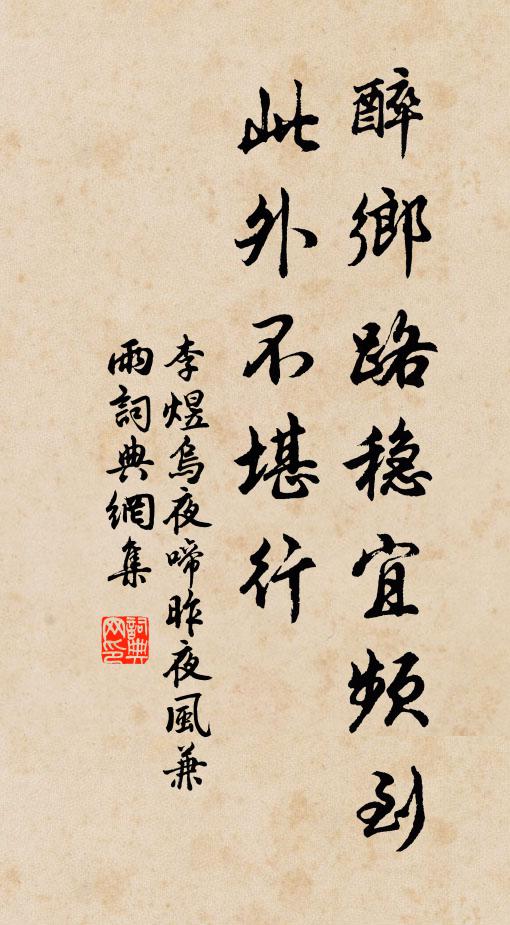 醉鄉路稳宜頻到
此外不堪行
李煜烏夜啼昨夜風兼
雨詞典網集
詞典網印